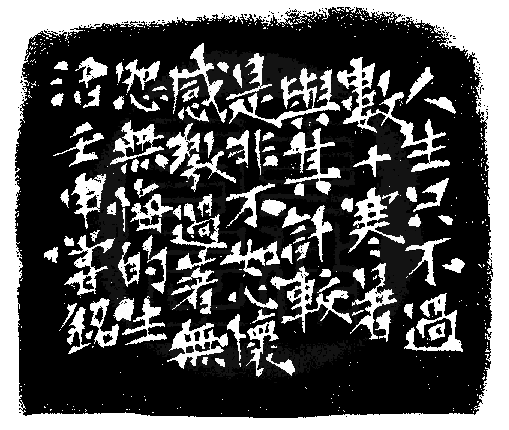 人生只不過
數十寒暑
與其計較
是非不如懷
感激過著無
怨無悔的生
活壬申銘